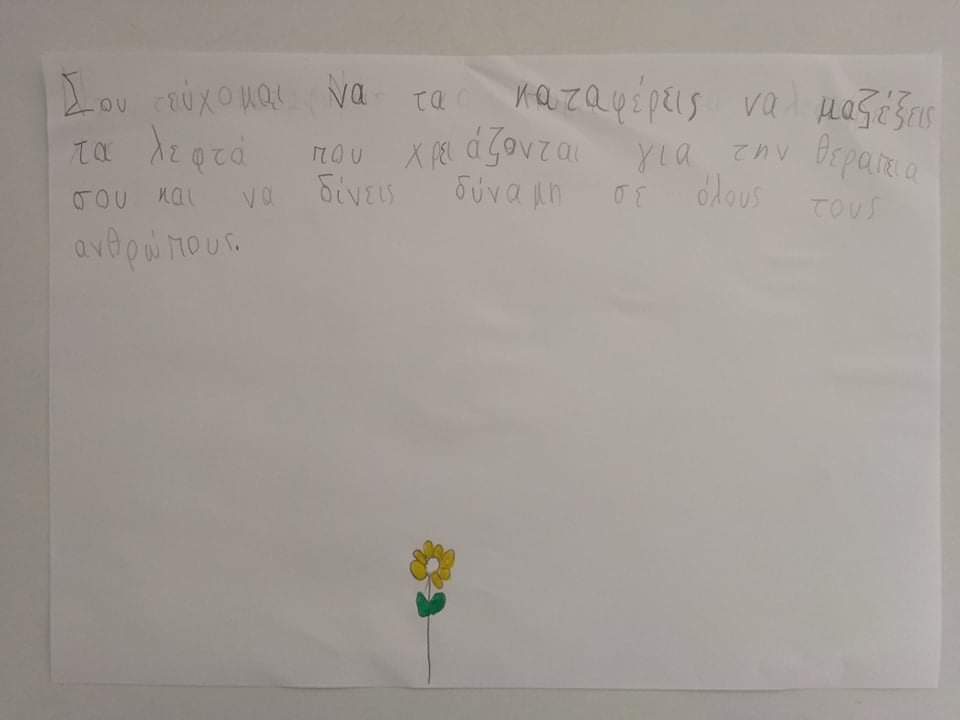 Σου εύχομαι Να τα καταφέρεις να μαζέξεις
τα λεφτά που χρειάζονται για την θεραπεια
σου και να δίνεις δύναμη σε όλους τους
ανθρώπους.